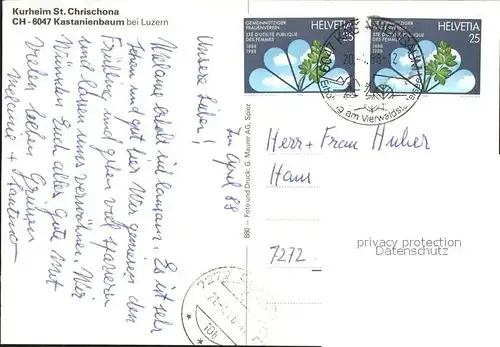 Kurheim St. Chrischona
CH - 6047 Kastanienbaum bei Luzern
GEMEINNÜTZIGER
FRAUENVEREIN
STE D'UTILITE PUBLIQUE
DES FEMMES
1888
1988
HELVETIA
25
GEMEINNÜTZIGER
FRAUENVEREIN
STE D'UTILITE PUBLIQUE
DES FEMMES
1888
1988
HELVETIA
25
Erholung am Vierwaldstättersee
Im April 88
Unsere Lieben!
Melanie erholt sich langsam. Es ist sehr
schön und gut hier. Wir geniessen den
Frühling und gehen viel spazieren
und lassen uns verwöhnen. Wir
wünschen Euch alles gute mit
vielen lieben Grüssen
Melanie +
860 – Foto und Druck: G. Maurer AG, Spiez
Herr + Frau Huber
Haus
7272
privacy protection
Datenschutz
7272
106